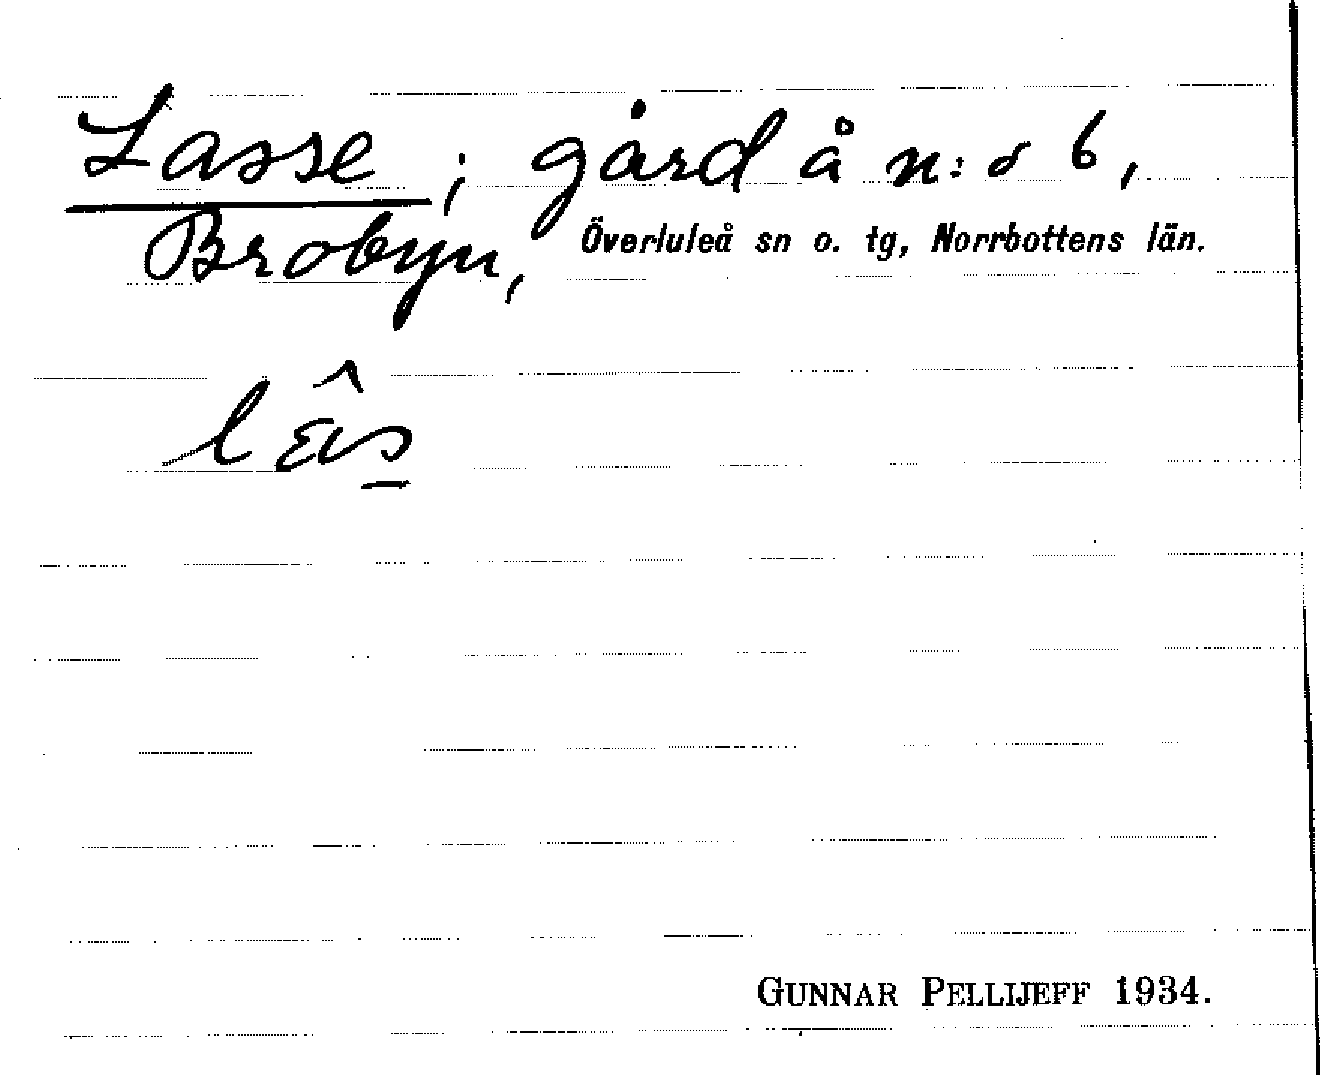 Lasse; gård å n:o 6,
Brobyn, Överluleå sn o. tg, Norrbottens län.
GUNNAR PELLIJEFF 1934.